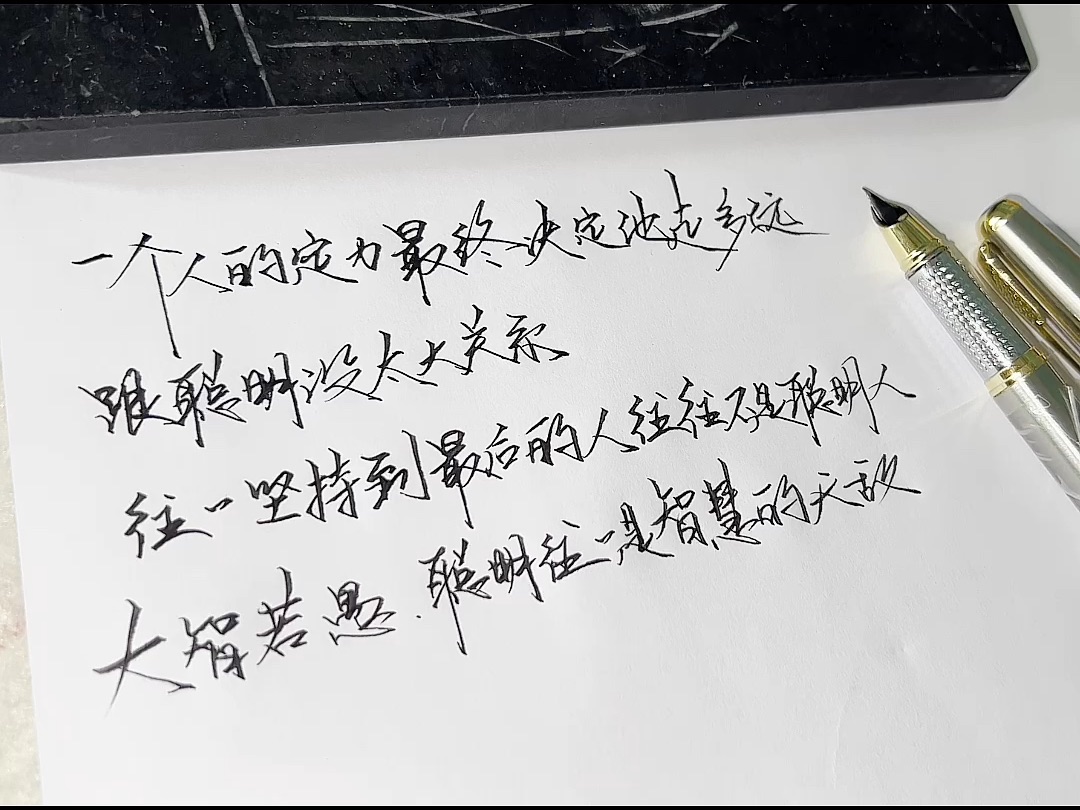 一个人的定力最终决定他走多远
跟聪明没太大关系
往往坚持到最后的人往往不是聪明人
大智若愚.聪明往往是智慧的天敌